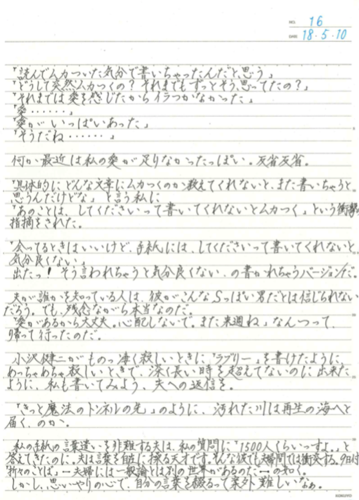 NO. 16
DATE 18・5・10
「読んでムカついた気分で書いちゃったんだと思う」
「どうして突然ムカつくの？それまでもずっとそう思ってたの？」
「それまでは愛を感じたからイラつかなかった」
「愛……」
「愛がいっぱいあった」
「そうだね……」
何か最近は私の愛が足りなかったっぽい。反省反省。
「具体的にどんな文章にムカつくのか教えてくれないと、また書いちゃうと
思うんだけどな」と言う私に
「あのことは、してくださいって書いてくれないとムカつく」という衝撃
指摘をされた。
「会ってるときはいいけど、手紙には、してくださいって書いてくれないと
気分良くない」
出たっ！そう言われちゃうと気分良くない、の書かれちゃうバージョンだ。
夫が誰かを知っている人は、彼がこんなSっぽい男だとは信じられない
だろう。でも、残念ながら本当なのだ。
「愛があるから大丈夫。心配しないで。また来週ね」なんつって、
帰って行ったのだ。
小沢健二がものっ凄く寂しいときに「ラブリー」を書けたように、
めっちゃめちゃ寂しいときで、深く長い時を超えてないのに出来た
ように、私も書いてみよう、夫への返信を。
「きっと魔法のトンネルの先」のように、汚れた川は再生の海へと
届く、のか。
私の手紙の言葉遣いを非難する夫は、私の質問に「1500人くらいっすよ。」と
答えてきたのに。夫は言葉を雑に操る天才です。そんな彼でも
折々のことば、一夫婦には一般論とは別の世界があるのだーの如く。
しかし、思いやりの心で、自分の言葉を綴るって案外難しいなぁ。